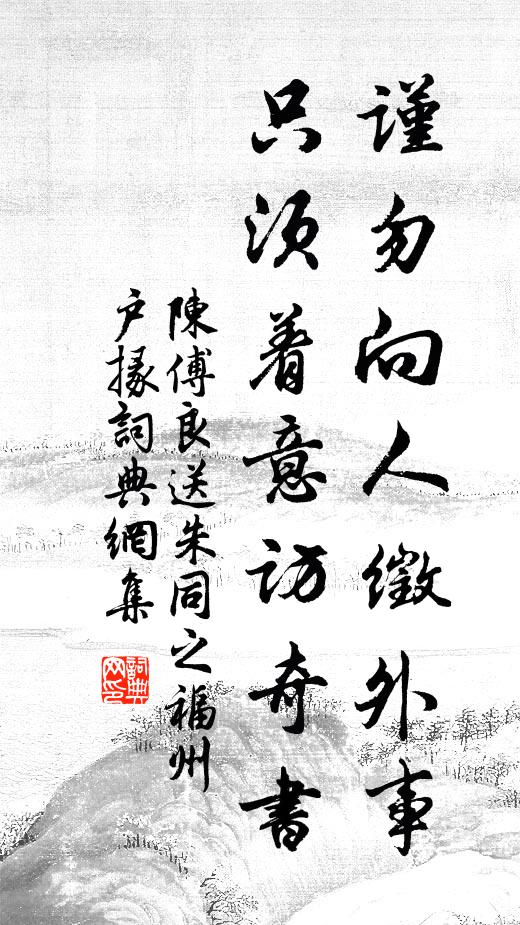 謹勿向人徵外事
只須着意訪奇書
陳傅良送朱同之福州
户掾詞典網集
詞典网印